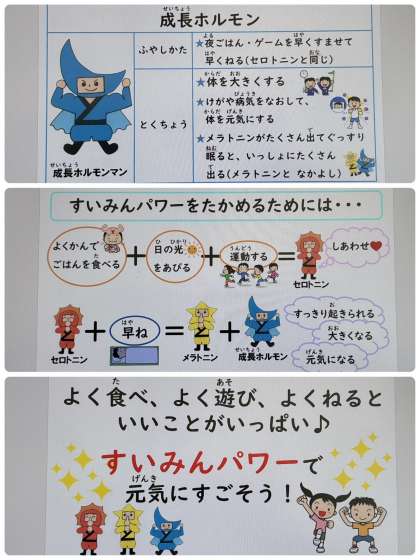 成長ホルモン
ふやしかた
★夜ごはん・ゲームを早くすませて
早くねる(セロトニンと同じ)
とくちょう
★体を大きくする
★けがや病気をなおして、
体を元気にする
★メラトニンがたくさん出てぐっすり
眠ると、いっしょにたくさん
出る(メラトニンと なかよし)
成長ホルモンマン
すいみんパワーをたかめるためには・・・
よくかんで
ごはんを食べる
+
日の光
をあびる
+
運動する
=
セロトニン
しあわせ♥
セロトニン
+
早ね
=
メラトニン
+
成長ホルモン
すっきり起きられる
大きくなる
元気になる
よく食べ、よく遊び、よくねると
いいことがいっぱい♪
すいみんパワーで
元気にすごそう！